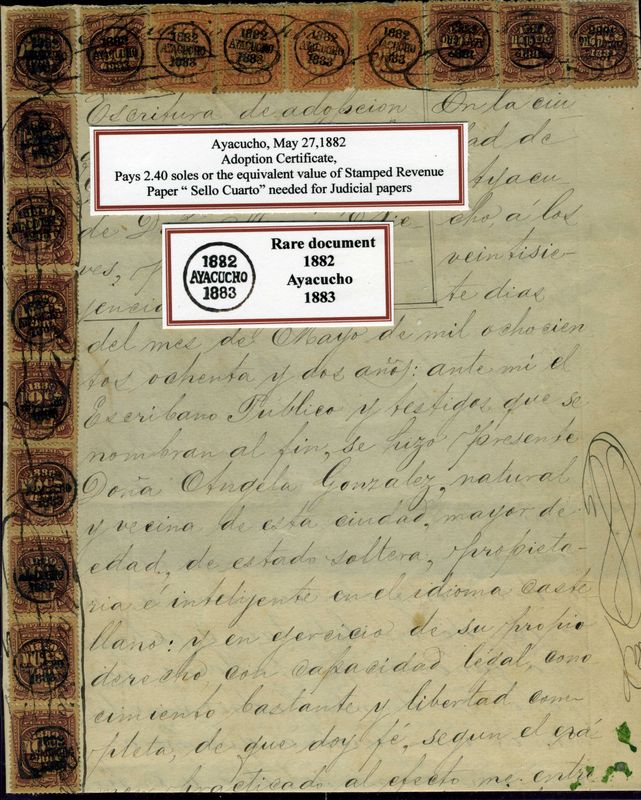 1882
AYACUCHO
1883
Escritura de adopcion
Ayacucho, May 27,1882
Adoption Certificate,
Pays 2.40 soles or the equivalent value of Stamped Revenue
Paper “ Sello Cuarto” needed for Judicial papers
1882
AYACUCHO
1883
Rare document
1882
Ayacucho
1883
En la ciu
dad de
Ayacu
cho, á los
veintisie-
te dias
del mes de Mayo de mil ochocien
tos ochenta y dos años: ante mi el
Escribano Publico y testigos que se
nombran al fin, se hizo presente
Doña Angela Gonzalez, natural
y vecina de esta ciudad, mayor de
edad, de estado soltera, propieta-
ria é inteligente en el idioma caste
llano: y en ejercicio de su propio
derecho con capacidad legal, cono
cimiento bastante y libertad com-
pleta, de que doy fé, segun el exá
men practicado al efecto me entre